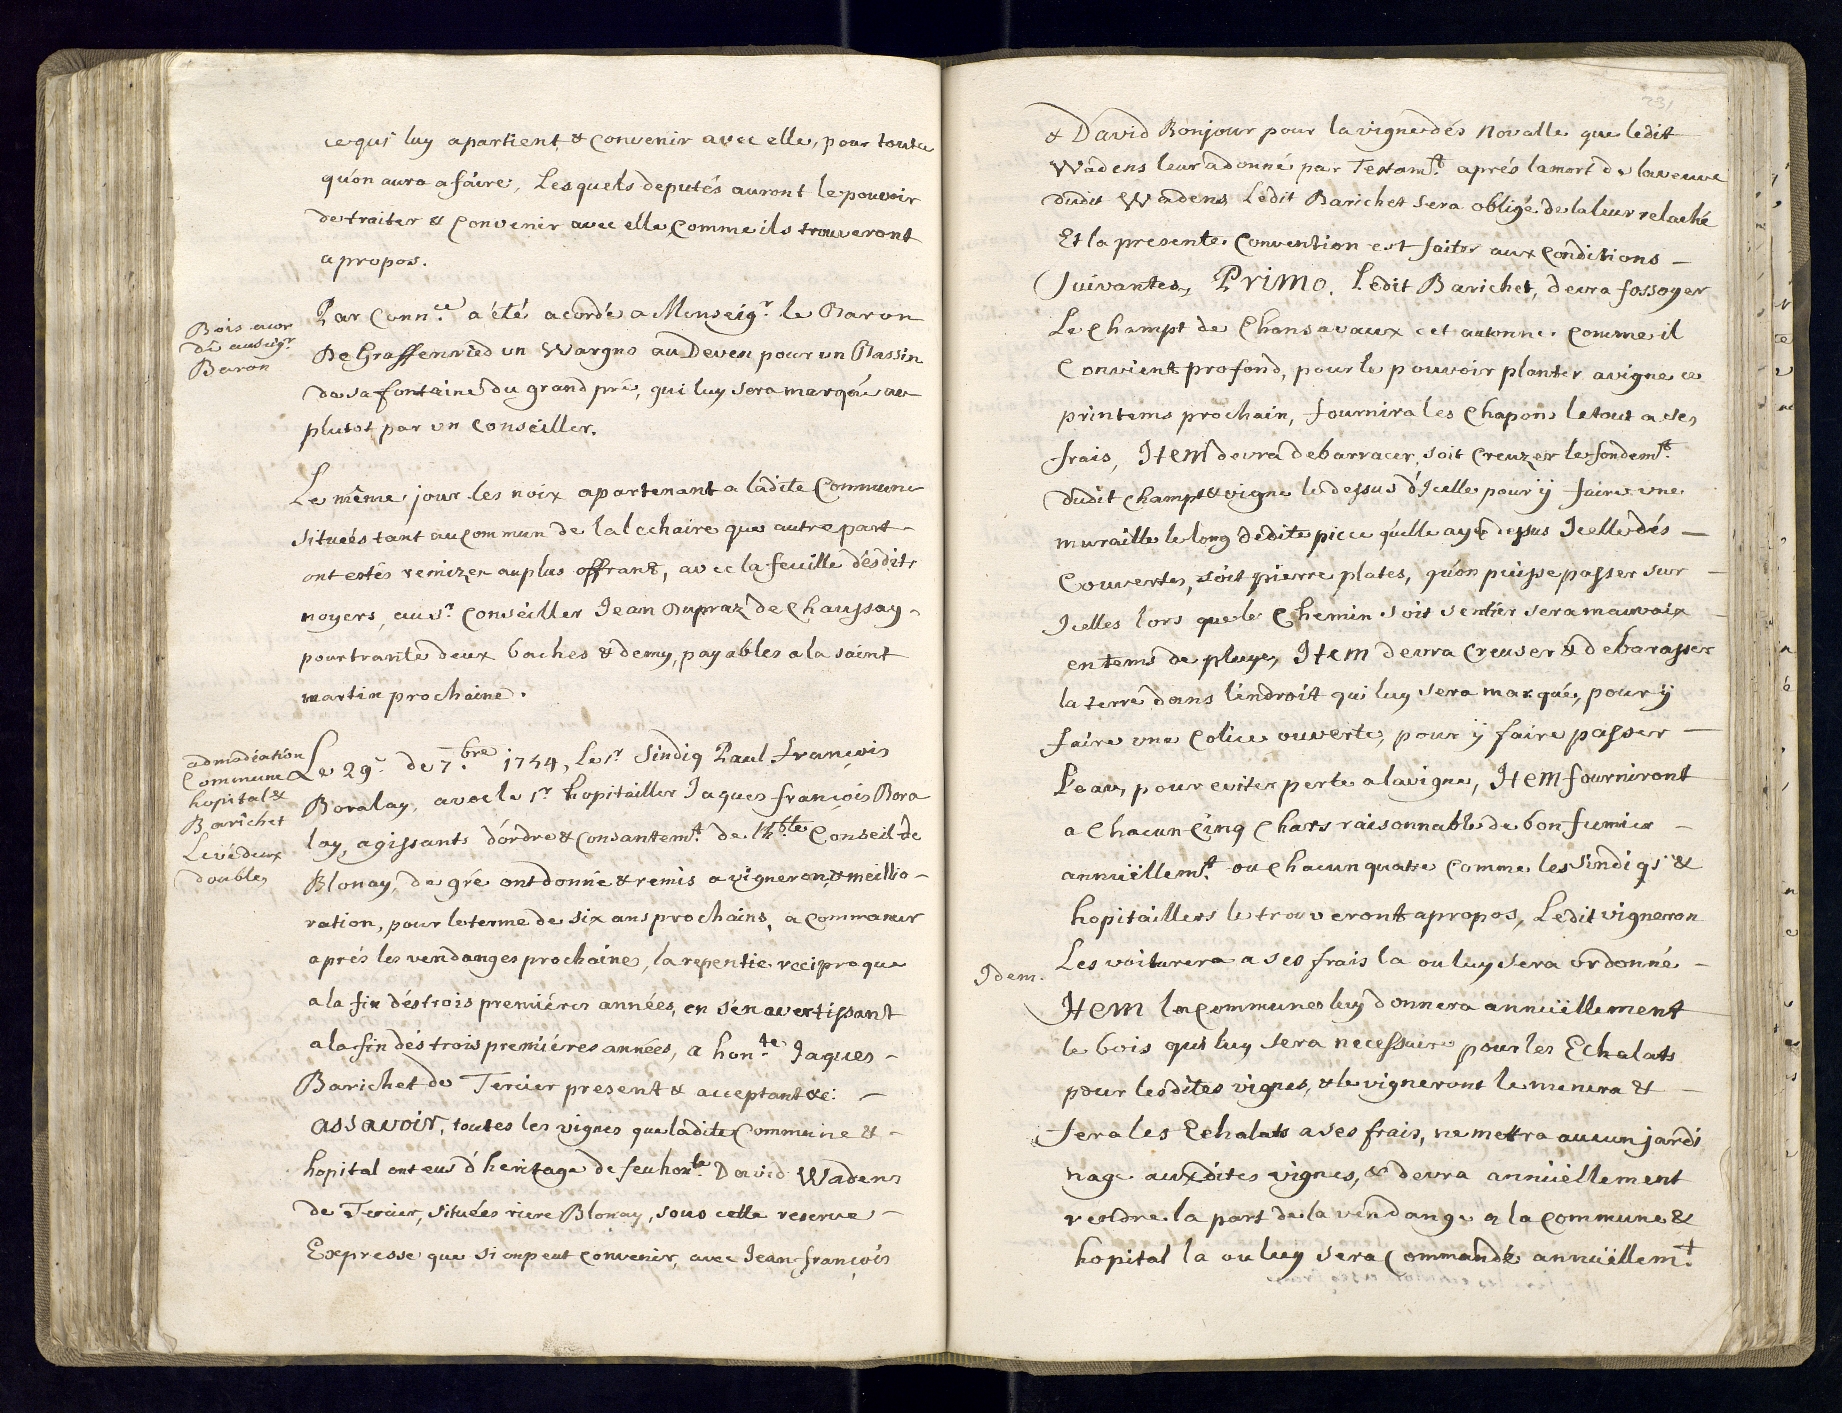 ce qui luy apartient & Convenir avec elle, pour toute
qu'on aura afaire, Lesquels deputés auront le pouvoir
de traiter & Convenir avec elle Comme ils trouveront
a propos.
Bois acor
dé au seigr
Baron
Par Connce a été acordé a Monseigr. le Baron
De Graffenried un Wargno au Deven pour un Bassin
de sa fontaine du grand pré, qui luy sera marqué au
plutot par un Conseiller.
Le même jour les noix apartenant a ladite Commune
situées tant au Commun de la lechaire que autre part -
ont estés remizes au plus offrant, avec la feuille désdits
noyers, au Sr. Conseiller Jean Dupraz de Chaussay -
pour trante deux baches & demy, payables a la saint
martin prochaine.
admodéation
Commune &
hopital &
Barichet
Levé deux
doubles
Le 29e. de 7.bre 1754, le sr. Sindiq Paul françois
Boralay, avec le sr hopitailler Jaques françois Bora
lay, agissants d'ordre & Consantemt. de l'hble Conseil de
Blonay, de gré ont donné & remis a vigneron & meillio -
ration, pour le terme de six ans prochains, a commancer
aprés les vendanges prochaines, la repentie reciproque
a la fin dés trois premiéres années, en s'en avertissant
a la fin dés trois premiéres années, a hon.te Jaques -
Barichet de Tercier present & acceptant &c: -
assavoir, toutes les vignes que ladite Commune & -
hopital ont eus d'heritage de feu honle David Wadens
de Tercier, situées riere Blonay, sous cette reserve -
Expresse que si on peut Convenir, avec Jean françois
231
& David Bonjour pour la vigne dés Novalle que ledit
Wadens leur a donné par Testamt. aprés la mort de la veuve
dudit Wadens Ledit Barichet sera obligé de la leur relaché
Et la presente Convention est faite aux Conditions -
Suivantes, Primo. Ledit Barichet, devra fossoyer
Le Champt de Chansavaux cet autonne. Comme il
Convient profond, pour le pouvoir planter a vigne ce
printems prochain, fournira les Chapons le tout a ses
frais, Item devra debarracer, soit Creuzer le fondemt.
dudit Champt & vigne le dessus d'Icelle pour ÿ faire une
muraille le long dedite piece qu'elle aye dessus Icelle dés -
Couvertes, soit pierre plates, qu'on puisse passer sur -
Icelles lors que le Chemin soit sentier sera mauvaix -
en tems de pluye, Item devra Creuser & debarasser
la terre dans l'endroit qui luy sera marqué, pour ÿ
faire une Colice ouverte, pour ÿ faire passer -
L'eau, pour eviter perte a la vigne, Item fourniront
a Chacun Cinq Chars raisonnable de bon fumier -
annüellemt. ou Chacun quatre Comme les Sindiqs &
hopitaillers le trouveront apropos, Ledit vigneron
Les voiturera a ses frais la ou luy sera ordonné -
Idem.
Item la Commune luy donnera annüellement
le bois qui luy sera necessaire pour les Echalats
pour lesdites vignes, & le vigneront le menera & -
fera les Echalats a ses frais, ne mettra aucun jardi
nage auxdites vignes, & devra annüellement
rendre la part de la vendange a la Commune &
hopital la ou luy sera Commandé annüellem.t